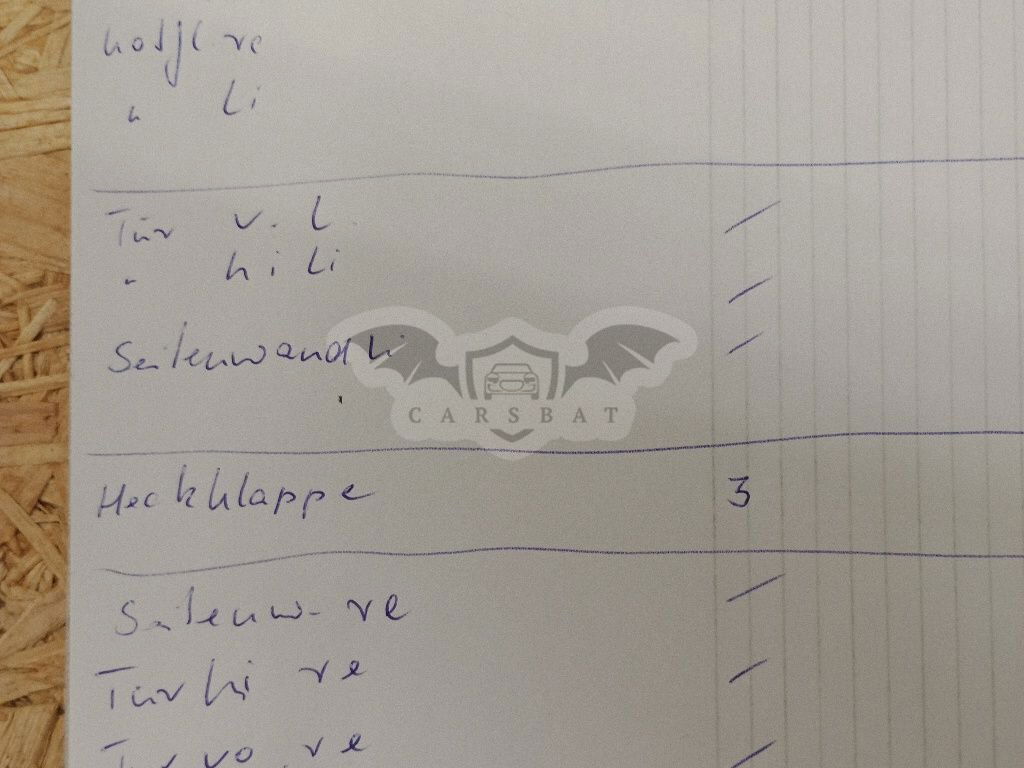 Kotfl. re
" li
Tür v. l.
" hi li
Seitenwand li
CARSBAT
Heckklappe 3
Seitenw. re
Tür hi re
Tür vo. re